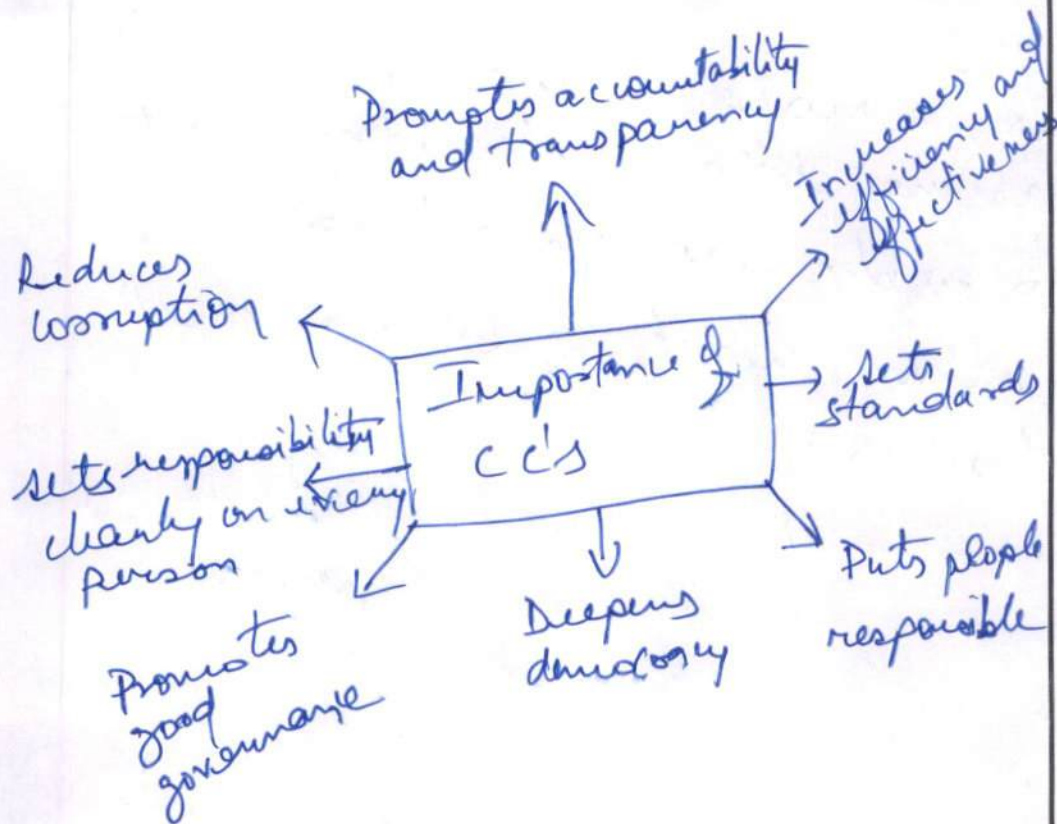 Promotes accountability
and transparency
Increases
efficiency and
effectiveness
Reduces
corruption
Importance of
CC's
sets
standards
sets responsibility
clearly on every
person
Puts people
responsible
Promotes
good
governance
Deepens
democracy